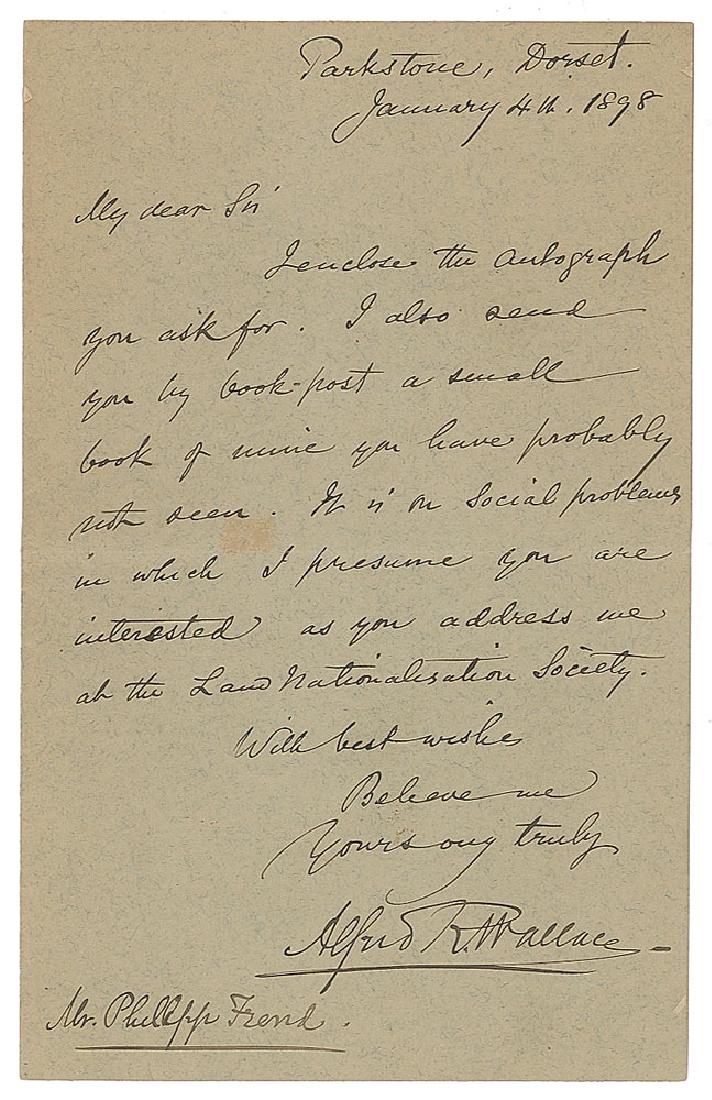 Parkstone, Dorset.
January 4th. 1898
My dear Sir
I enclose the autograph
you ask for. I also send
you by book-post a small
book of mine you have probably
not seen. It is on Social problems
in which I presume you are
interested as you address me
at the Land Nationalisation Society.
With best wishes
Believe me
Yours truly
Alfred R. Wallace
Mr. Philipp